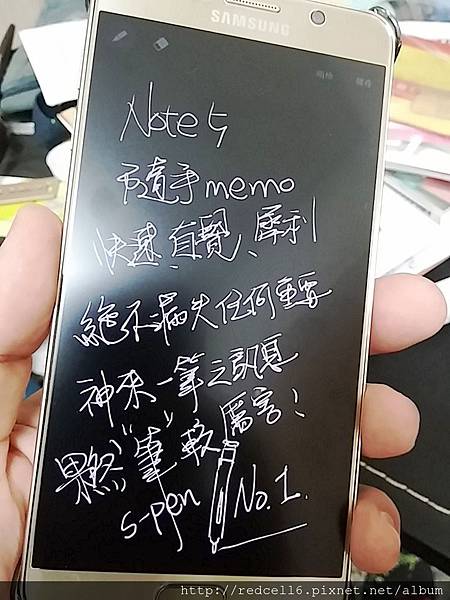 SAMSUNG
儲存
Note 5
隨手memo
快速、直覺、犀利
絕不漏失任何重要
神來一筆之訊息
果然"筆"較厲害!
s-pen No.1.
http://redcell6.pixnet.net/album